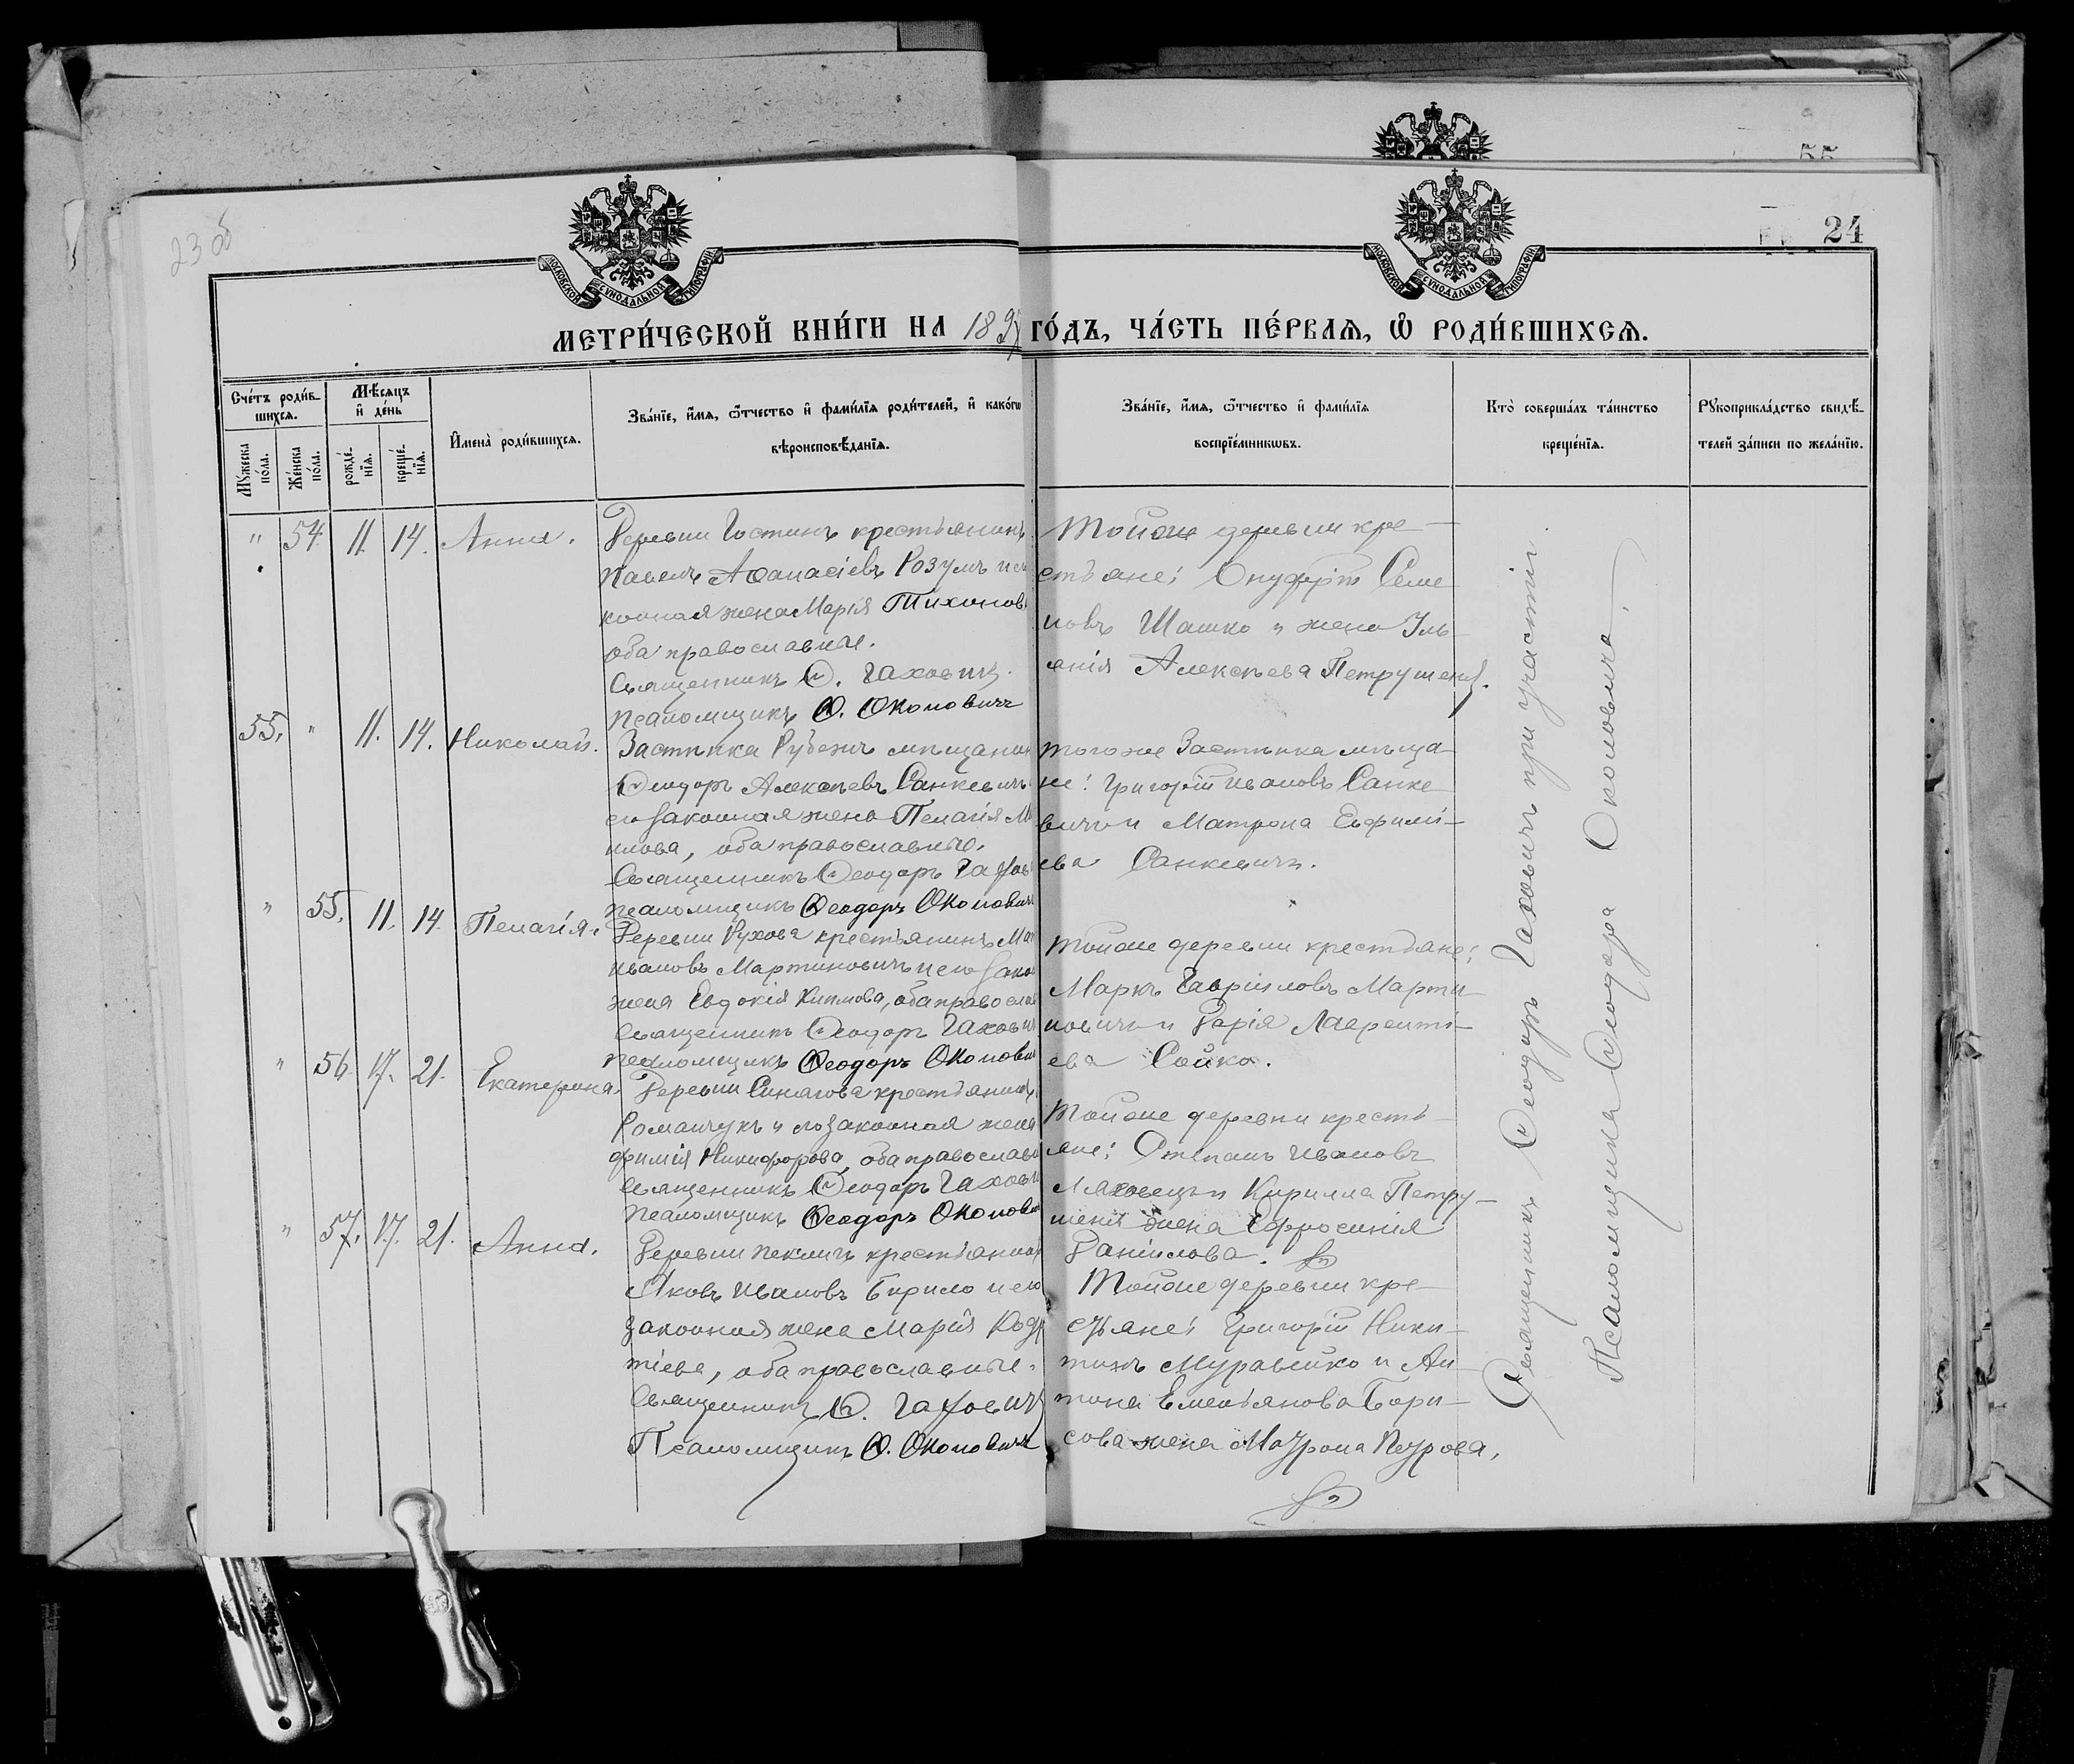 23 об
55
24
МОСКОВСКОЙ СѴНОДАЛЬНОЙ ТИПОГРАФІИ
МОСКОВСКОЙ СѴНОДАЛЬНОЙ ТИПОГРАФІИ
МЕТРИ́ЧЕСКОЙ КНИ́ГИ НА 189 ГО́ДЪ, ЧА́СТЬ ПЕ́РВАЯ, Ѡ҆ РОДИ́ВШИХСЯ.
Сче́тъ роди́в-
шихся.
Му́жеска по́ла.
Же́нска по́ла.
Мѣ́сяцъ и҆ де́нь
рожде́-
нїя.
креще́-
нїя.
И҆мена̀ роди́вшихся.
Зва́нїе, и҆́мя, ѻ҆́тчество и҆ фами́лїя роди́телей, и҆ како́гѡ
вѣроисповѣ́данїя.
Зва́нїе, и҆́мя, ѻ҆́тчество и҆ фами́лїя
воспрїе́мникѡвъ.
Кто̀ соверша́лъ та́инство
креще́нїя.
Рꙋкоприкла́дство свидѣ́-
телей за́писи по жела́нїю.
" 54. 11. 14. Анна.
Деревни Гостинъ крестьянинъ
Павелъ Аѳанасіевъ Розумъ и
конная жена Марія Тихонов
оба православные.
Священникъ Ѳ. Гахович
Псаломщикъ Ѳ. Околовичъ
Тойже деревни кре-
стьяне: Онуфрій Семе
новъ Шашко и жена Уль
янія Алексѣева Петрушеня.
55. " 11. 14. Николай.
Застѣнка Рубежъ мѣщанин
Ѳеодоръ Алексѣевъ Санкевичъ
его законная жена Пелагія М
илова, оба православные.
Священникъ Ѳеодоръ Гахов
Псаломщикъ Ѳеодоръ Околович
того же Застѣнка мѣща-
не: Григорій Ивановъ Санке
вичъ и Матрона Евфимі-
ева Санкевичъ.
" 55. 11. 14. Пелагія.
Деревни Рухова крестьянинъ Ма
Ивановъ Мартиновичъ и его зако
жена Евдокія Климова, оба правосла
Священникъ Ѳеодоръ Гахови
Псаломщикъ Ѳеодоръ Околови
Тойже деревни крестьяне:
Маркъ Гавріиловъ Марти-
новичъ и Дарія Лаврентi-
ева Сойко.
" 56. 17. 21. Екатерина.
Деревни Синягова крестьянин
Романчукъ и его законная жена
фимія Никифорова, оба православн
Священникъ Ѳеодоръ Гахови
Псаломщикъ Ѳеодоръ Околови
Тойже деревни кресть-
яне: Степанъ Ивановъ
Ляховецъ и Кирилла Петру-
шени жена Ефросинія
Даніилова.
" 57. 17. 21. Анна.
Деревни Пекличъ крестьянин
Яковъ Ивановъ Бирило и его
законная жена Марія Кодр
тіева, оба православные.
Священникъ Ѳ. Гахович
Псаломщикъ Ѳ. Околовичъ
Тойже деревни кре-
стьяне: Григорій Ники-
тинъ Муравейко и Ан-
тона Емельянова Бори-
сова жена Матрона Петрова.
Священникъ Ѳеодоръ Гаховичъ при участіи
Псаломщика Ѳеодора Околовича.